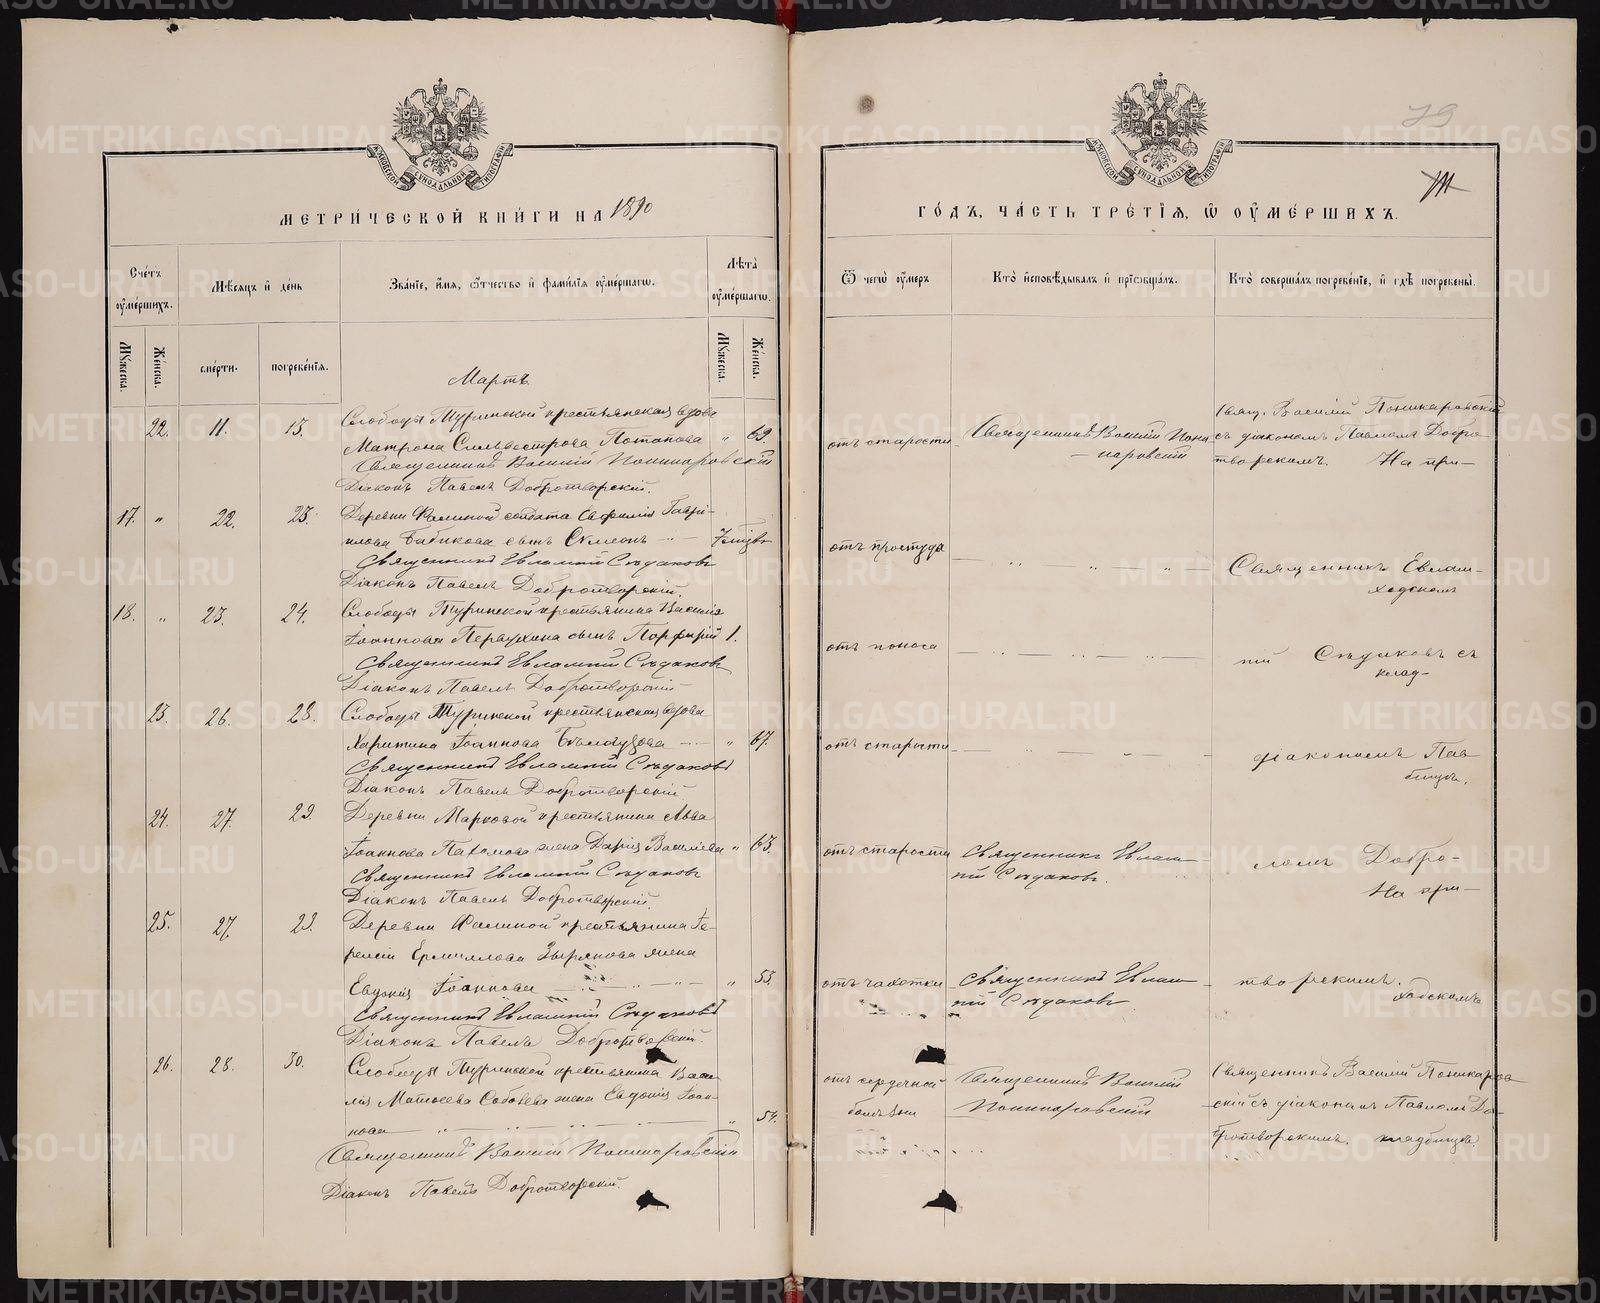 МЕТРИЧЕСКОЙ КНИГИ НА 1890
Счетъ умершихъ.
Мѣсяцъ и день
Званіе, имя, отчество и фамилія умершаго.
Лѣта умершаго.
Мужеска.
Женска.
смерти.
погребенія.
Мужеска.
Женска.
Мартъ
22. 11. 13. Слободы Туринской крестьянская вдова
Матрона Сильвестрова Потапова „ 69.
Священникъ Василій Поникаровскій
Діаконъ Павелъ Добротворскій.
17. „ 22. 23. Деревни солдата Евфимія Гаври-
илова Бабикова сынъ Сѵмеонъ
Священникъ Евлампій Сѣдаковъ
Діаконъ Павелъ Добротворскій.
18. „ 23. 24. Слободы Туринской крестьянина Василія
Іоаннова Первухина сынъ Порфирій 1.
Священникъ Евлампій Сѣдаковъ
Діаконъ Павелъ Добротворскій
23. 26. 28. Слободы Туринской крестьянская вдова
Харитина Іоаннова „ 67.
Священникъ Евлампій Сѣдаковъ
Діаконъ Павелъ Добротворскій
24. 27. 29. Деревни Марковой крестьянина Авва
Іоаннова Пахомова жена Дарія Василіева „ 63.
Священникъ Евлампій Сѣдаковъ
Діаконъ Павелъ Добротворскій.
25. 27. 29. Деревни крестьянина Ге-
Ермиллова Зырянова жена
Евдокія Іоаннова „ 53.
Священникъ Евлампій Сѣдаковъ
Діаконъ Павелъ Добротворскій.
26. 28. 30. Слободы Туринской крестьянина Васи-
лія Матѳеева жена Евдокія Іоан-
нова „ 54.
Священникъ Василій Поникаровскій
Діаконъ Павелъ Добротворскій.
79
ГОДЪ, ЧАСТЬ ТРЕТІЯ, Ѡ УМЕРШИХЪ.
Ѿ чего умеръ
Кто исповѣдывалъ и пріобщалъ.
Кто совершалъ погребеніе, и гдѣ погребены.
отъ старости
Священникъ Василій Пони-
каровскій
Свящ. Василій Поникаровскій
съ діакономъ Павломъ Добро-
творскимъ. На при-
отъ простуды
Священникъ Евлам-
ходскомъ
отъ поноса
пій Сѣдаковъ съ
клад-
отъ старости
діакономъ Пав-
бищѣ.
отъ старости
Священникъ Евлам-
пій Сѣдаковъ.
ломъ Добро-
На при-
отъ чахотки
Священникъ Евлам-
пій Сѣдаковъ
творскимъ.
ходскомъ
отъ сердечной
болѣзни
Священникъ Василій
Поникаровскій
Священникъ Василій Поникаров-
скій съ діакономъ Павломъ До-
бротворскимъ. кладбищѣ
METRIKI.GASO-URAL.RU